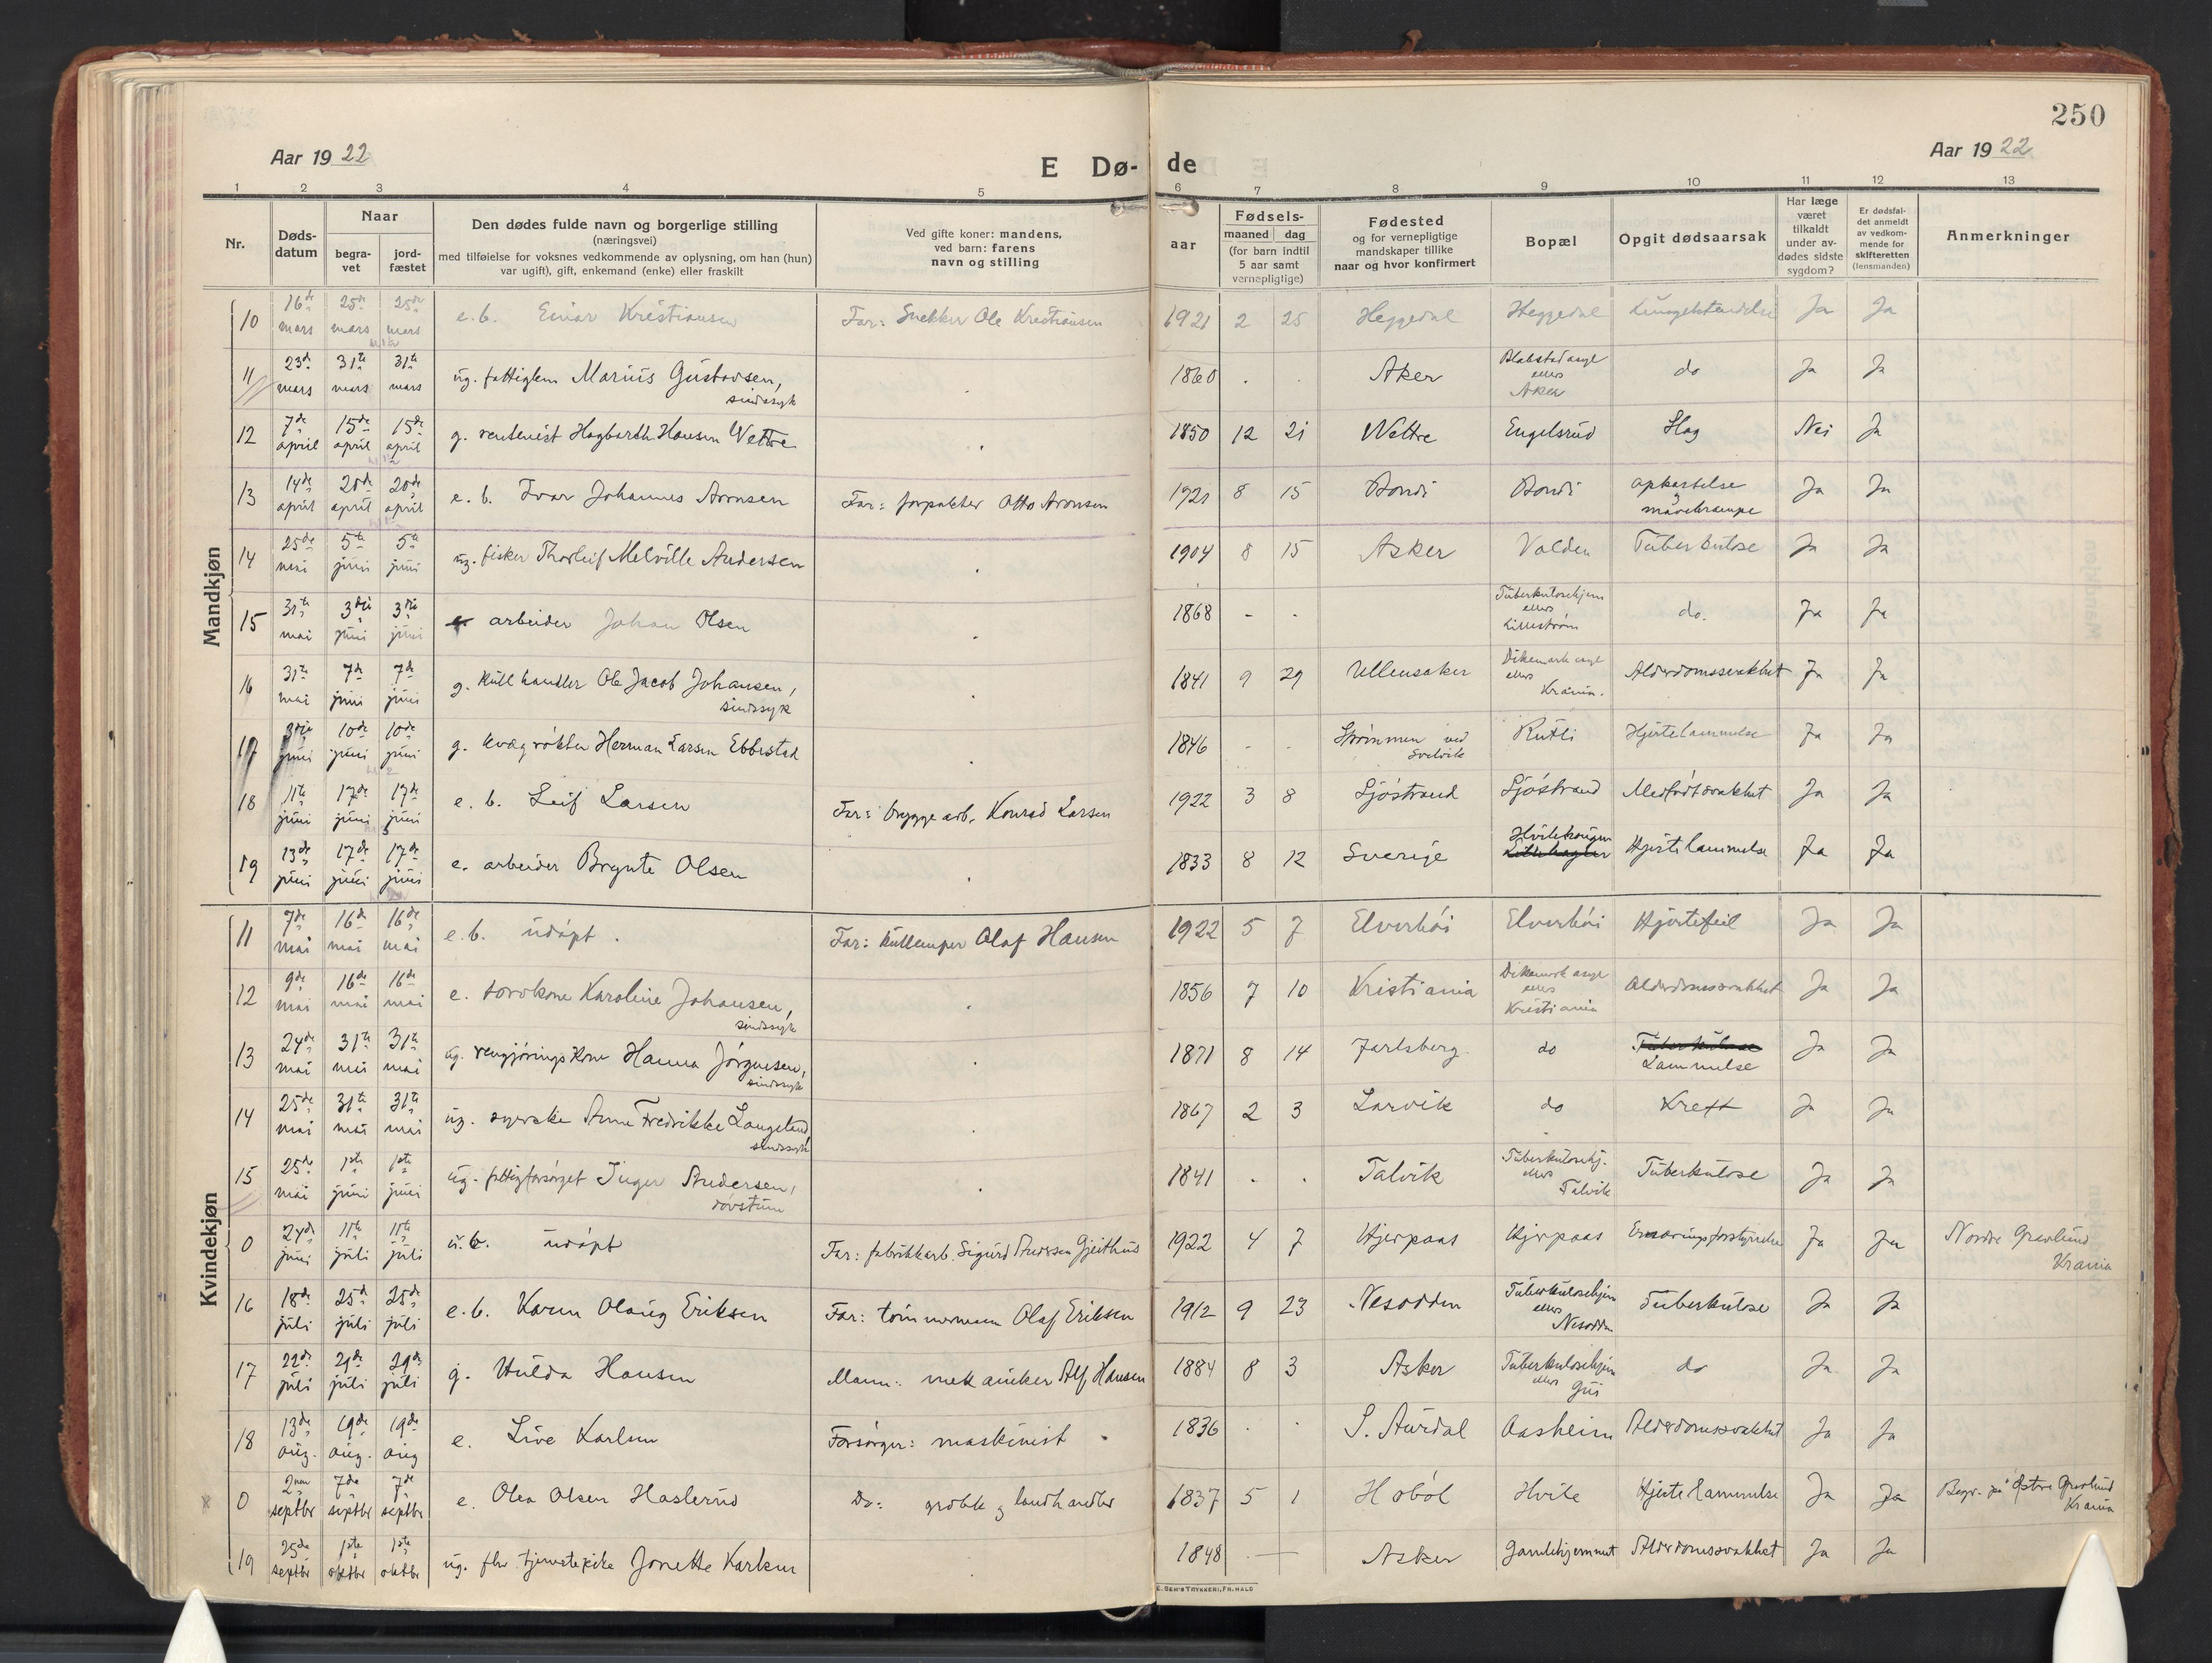 250
Aar 1922
E Dø- de
Aar 1922
1 2 3 4 5 6 7 8 9 10 11 12 13
Nr.
Døds-datum
Naar
begra-vet
jord-fæstet
Den dødes fulde navn og borgerlige stilling
(næringsvei)
med tilføielse for voksnes vedkommende av oplysning, om han (hun)
var ugift), gift, enkemand (enke) eller fraskilt
Ved gifte koner: mandens,
ved barn: farens
navn og stilling
aar
Fødsels-
maaned dag
(for barn indtil
5 aar samt
vernepligtige)
Fødested
og for vernepligtige
mandskaper tillike
naar og hvor konfirmert
Bopæl
Opgit dødsaarsak
Har læge
været
tilkaldt
under av-
dødes sidste
sygdom?
Er dødsfal-
det anmeldt
av vedkom-
mende for
skifteretten
(lensmanden)
Anmerkninger
Mandkjøn
10 16de mars 25de mars 25de mars e.b. Einar Kristiansen Far: Snekker Ole Kristiansen 1921 2 25 Heggedal Heggedal Lungebetændelse Ja Ja
11 23de mars 31te mars 31te mars ug. fattiglem Marius Gustavsen, sindssyk 1860 . . Aker Blakstad asyl ellers Aker do Ja Ja
12 7de april 15de april 15de april g. rentenist Hagbarth Hansen Wettre 1850 12 21 Wettre Engelsrud Slag Nei Ja
13 14de april 20de april 20de april e. b. Ivar Johannes Aronsen Far: forpakter Otto Aronsen 1921 8 15 Bondi Bondi opkastelse og mavekrampe Ja Ja
14 25de mai 5te juni 5te juni ug. fisker Thorleif Melville Andersen 1904 8 15 Asker Valden Tuberkulose Ja Ja
15 31te mai 3die juni 3die juni arbeider Johan Olsen 1868 - . Tuberkulosehjem ellers Lillestrøm do. Ja Ja
16 31te mai 7de juni 7de juni g. kullhandler Ole Jacob Johansen, sindssyk 1841 9 29 Ullensaker Dikemark asyl ellers Krania. Alderdomssvakhet Ja Ja
17 3die juni 10de juni 10de juni g. kvægrøkter Herman Larsen Ebbestad 1846 - - Strømmen ved Svelvik Rutli Hjertelammelse Ja Ja
18 11te juni 17de juni 17de juni e. b. Leif Larsen Far: bryggearb. Konrad Larsen 1922 3 8 Sjøstrand Sjøstrand Medfødt svakhet Ja Ja
19 13de juni 17de juni 17de juni e. arbeider Brynte Olsen 1833 8 12 Sverige Hjertelammelse Ja Ja
Kvindekjøn
11 7de mai 16de mai 16de mai e.b. udøpt. Far: Olaf Hansen 1922 5 7 Elverhøi Elverhøi Hjertefeil Ja Ja
12 9de mai 16de mai 16de mai e. torvkone Karoline Johansen, sindssyk 1856 7 10 Kristiania Dikemark asyl ellers Kristiania Alderdomssvakhet Ja Ja
13 24de mai 31te mai 31te mai ug. rengjøringskone Hanna Jørgensen, sindssyk 1871 8 14 Jarlsberg. do Tuberkulose Lammelse Ja Ja
14 25de mai 31te mai 31te mai ug. syerske Anne Fredrikke Langeland, sindssyk 1867 2 3 Larvik do Kreft Ja Ja
15 25de mai 1ste juni 1ste juni ug. fattigforsørget Inger Andersen, døvstum 1841 . . Talvik Tuberkulosehj. ellers Talvik Tuberkulose Ja Ja
0 24de juni 11te juli 11te juli u.b. udøpt Far: fabrikkarb. Sigurd Andersen Gjeithus 1922 4 7 Hjerpaas Hjerpaas Ernæringsforstyrrelse Ja Ja Nordre Gravlund Krania
16 18de juli 25de juli 25de juli e.b. Karen Olaug Eriksen Far: tømmermann Olaf Eriksen 1912 9 23 Nesodden Tuberkulosehjem ellers Nesodden Tuberkulose Ja Ja
17 22de juli 29de juli 29de juli g. Hulda Hansen Mann: mekaniker Alf Hansen 1884 8 3 Asker Tuberkulosehjem ellers Gui do Ja Ja
18 13de aug. 19de aug. 19de aug e. Live Karlsen Forsørger: maskinist 1836 . . S. Aurdal Aasheim Alderdomssvakhet Ja Ja
0 2nen septbr 7de septbr 7de septbr e. Olea Olsen Haslerud Do: grobk og landhandler 1837 5 1 Hobøl Hvile Hjertelammelse Ja Ja Begr. på Østre Gravlund Krania
19 25de septbr 1ste oktbr 1ste oktbr ug. fhv. tjenestepike Jonette Karlsen 1848 . — Asker Gamlehjemmet Alderdomssvakhet Ja Ja
E. SEM'S TRYKKERI, FR.HALD